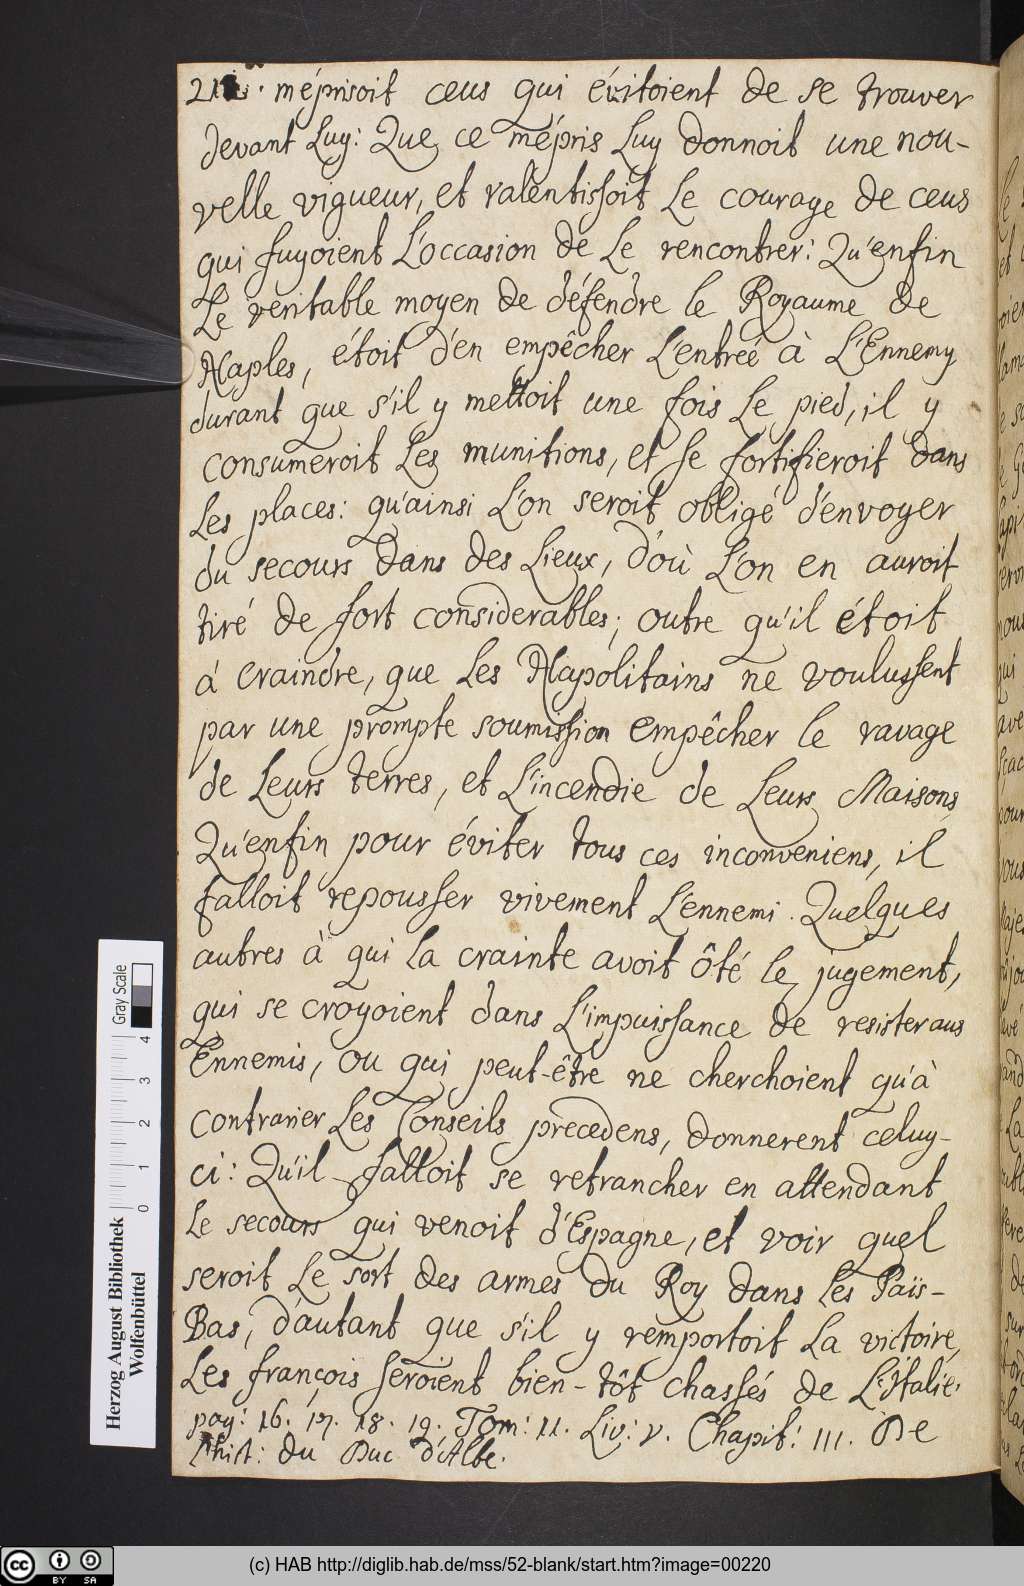 méprisoit ceus qui évitoient de se trouver
devant Luy: Que ce mépris Luy donnoit une nou-
velle vigueur, et ralentissoit Le courage de ceus
qui fuyoient L'occasion de Le rencontrer: Qu'enfin
Le veritable moyen de défendre le Royaume de
Naples, étoit d'en empêcher L'entreé à L'Ennemy
durant que s'il y mettoit une fois Le pied, il y
consumeroit Les munitions, et se fortifieroit dans
Les places: qu'ainsi L'on seroit obligé d'envoyer
du secours dans des Lieux, d'où L'on en auroit
tiré de fort considerables; outre qu'il étoit
à craindre, que Les Napolitains ne voulussent
par une prompte soumission empêcher le ravage
de Leurs terres, et L'incendie de Leurs Maisons,
Qu'enfin pour éviter tous ces inconveniens, il
falloit repousser vivement L'ennemi. Quelques
autres à qui La crainte avoit ôté le jugement,
qui se croyoient dans L'impuissance de resister aus
Ennemis, ou qui peut-être ne cherchoient qu'à
contrarier Les Conseils precedens, donnerent celuy-
ci: Qu'il falloit se retrancher en attendant
Le secours qui venoit d'Espagne, et voir quel
seroit Le sort des armes du Roy dans Les Païs-
Bas, d'autant que s'il y remportoit La victoire,
Les françois seroient bien-tôt chassés de L'Italie.
pag: 16. 17. 18. 19. Tom: 11. Liv: v. Chapit: III. De
L'hist: du Duc d'Albe.
Gray Scale
4
3
2
1
0
Herzog August Bibliothek
Wolfenbüttel
cc BY SA
(c) HAB http://diglib.hab.de/mss/52-blank/start.htm?image=00220